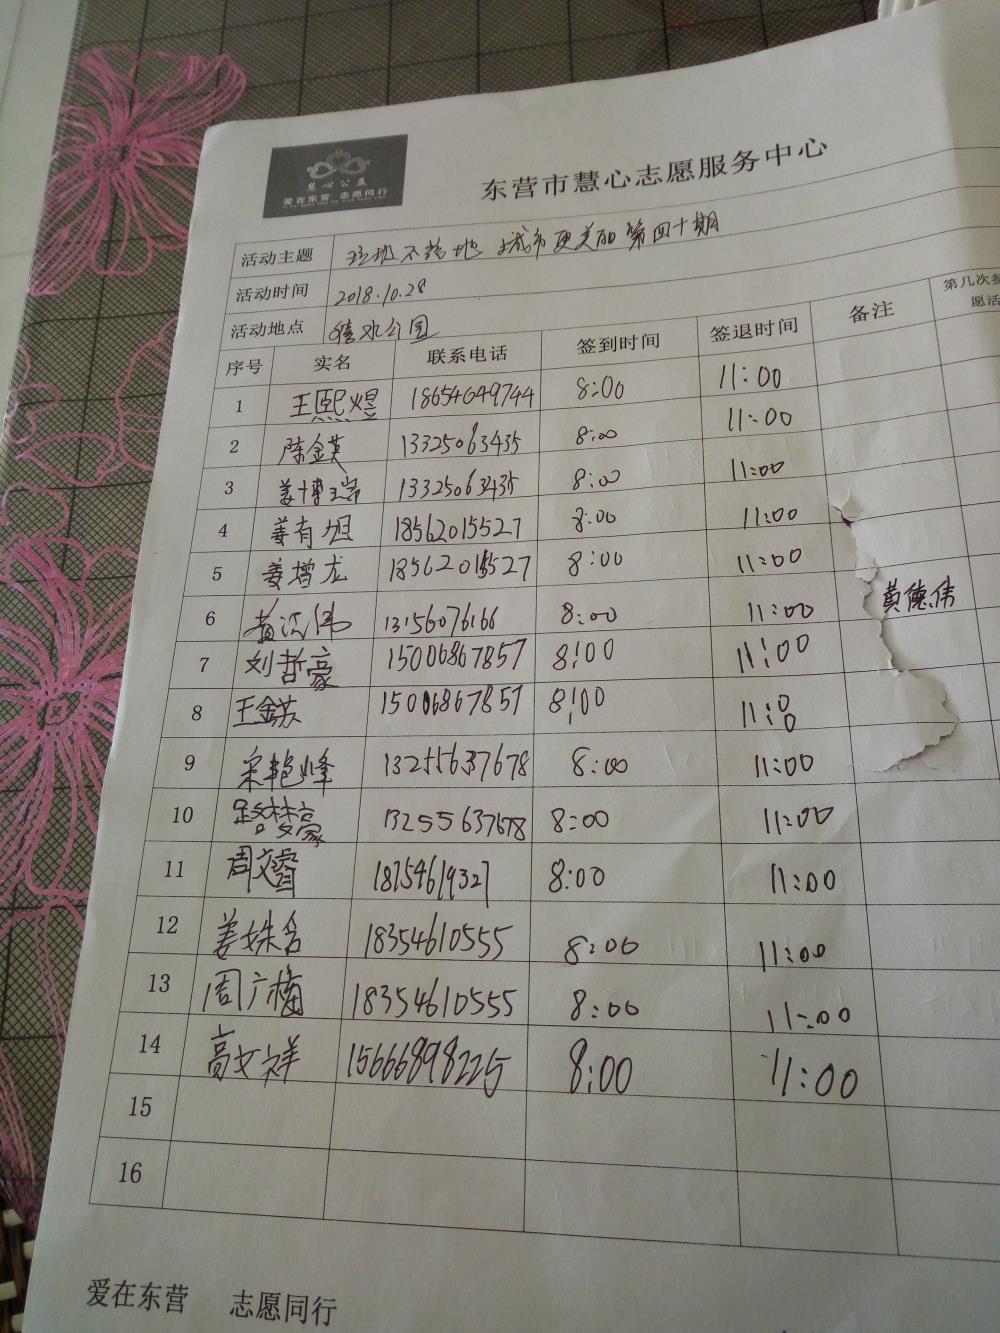 慧心公益
爱在东营 志愿同行
东营市慧心志愿服务中心
活动主题 垃圾不落地 城市更美丽 第四十期
活动时间 2018.10.28
活动地点 公园
序号 实名 联系电话 签到时间 签退时间 备注 第几次参 愿活
1 王熙煜 18654649744 8:00 11:00
2 陈金英 13325063435 8:00 11:00
3 姜博瑞 13325063435 8:00 11:00
4 姜有旭 18562015527 8:00 11:00
5 姜增龙 18562015527 8:00 11:00
6 13156076166 8:00 11:00 黄德伟
7 刘哲豪 15006867857 8:00 11:00
8 王金芬 15006867857 8:00 11:00
9 宋艳峰 13255637678 8:00 11:00
10 路梦豪 13255637678 8:00 11:00
11 周文睿 18754619327 8:00 11:00
12 姜姝含 18354610555 8:00 11:00
13 周广梅 18354610555 8:00 11:00
14 高文祥 15666898225 8:00 11:00
15
16
爱在东营 志愿同行